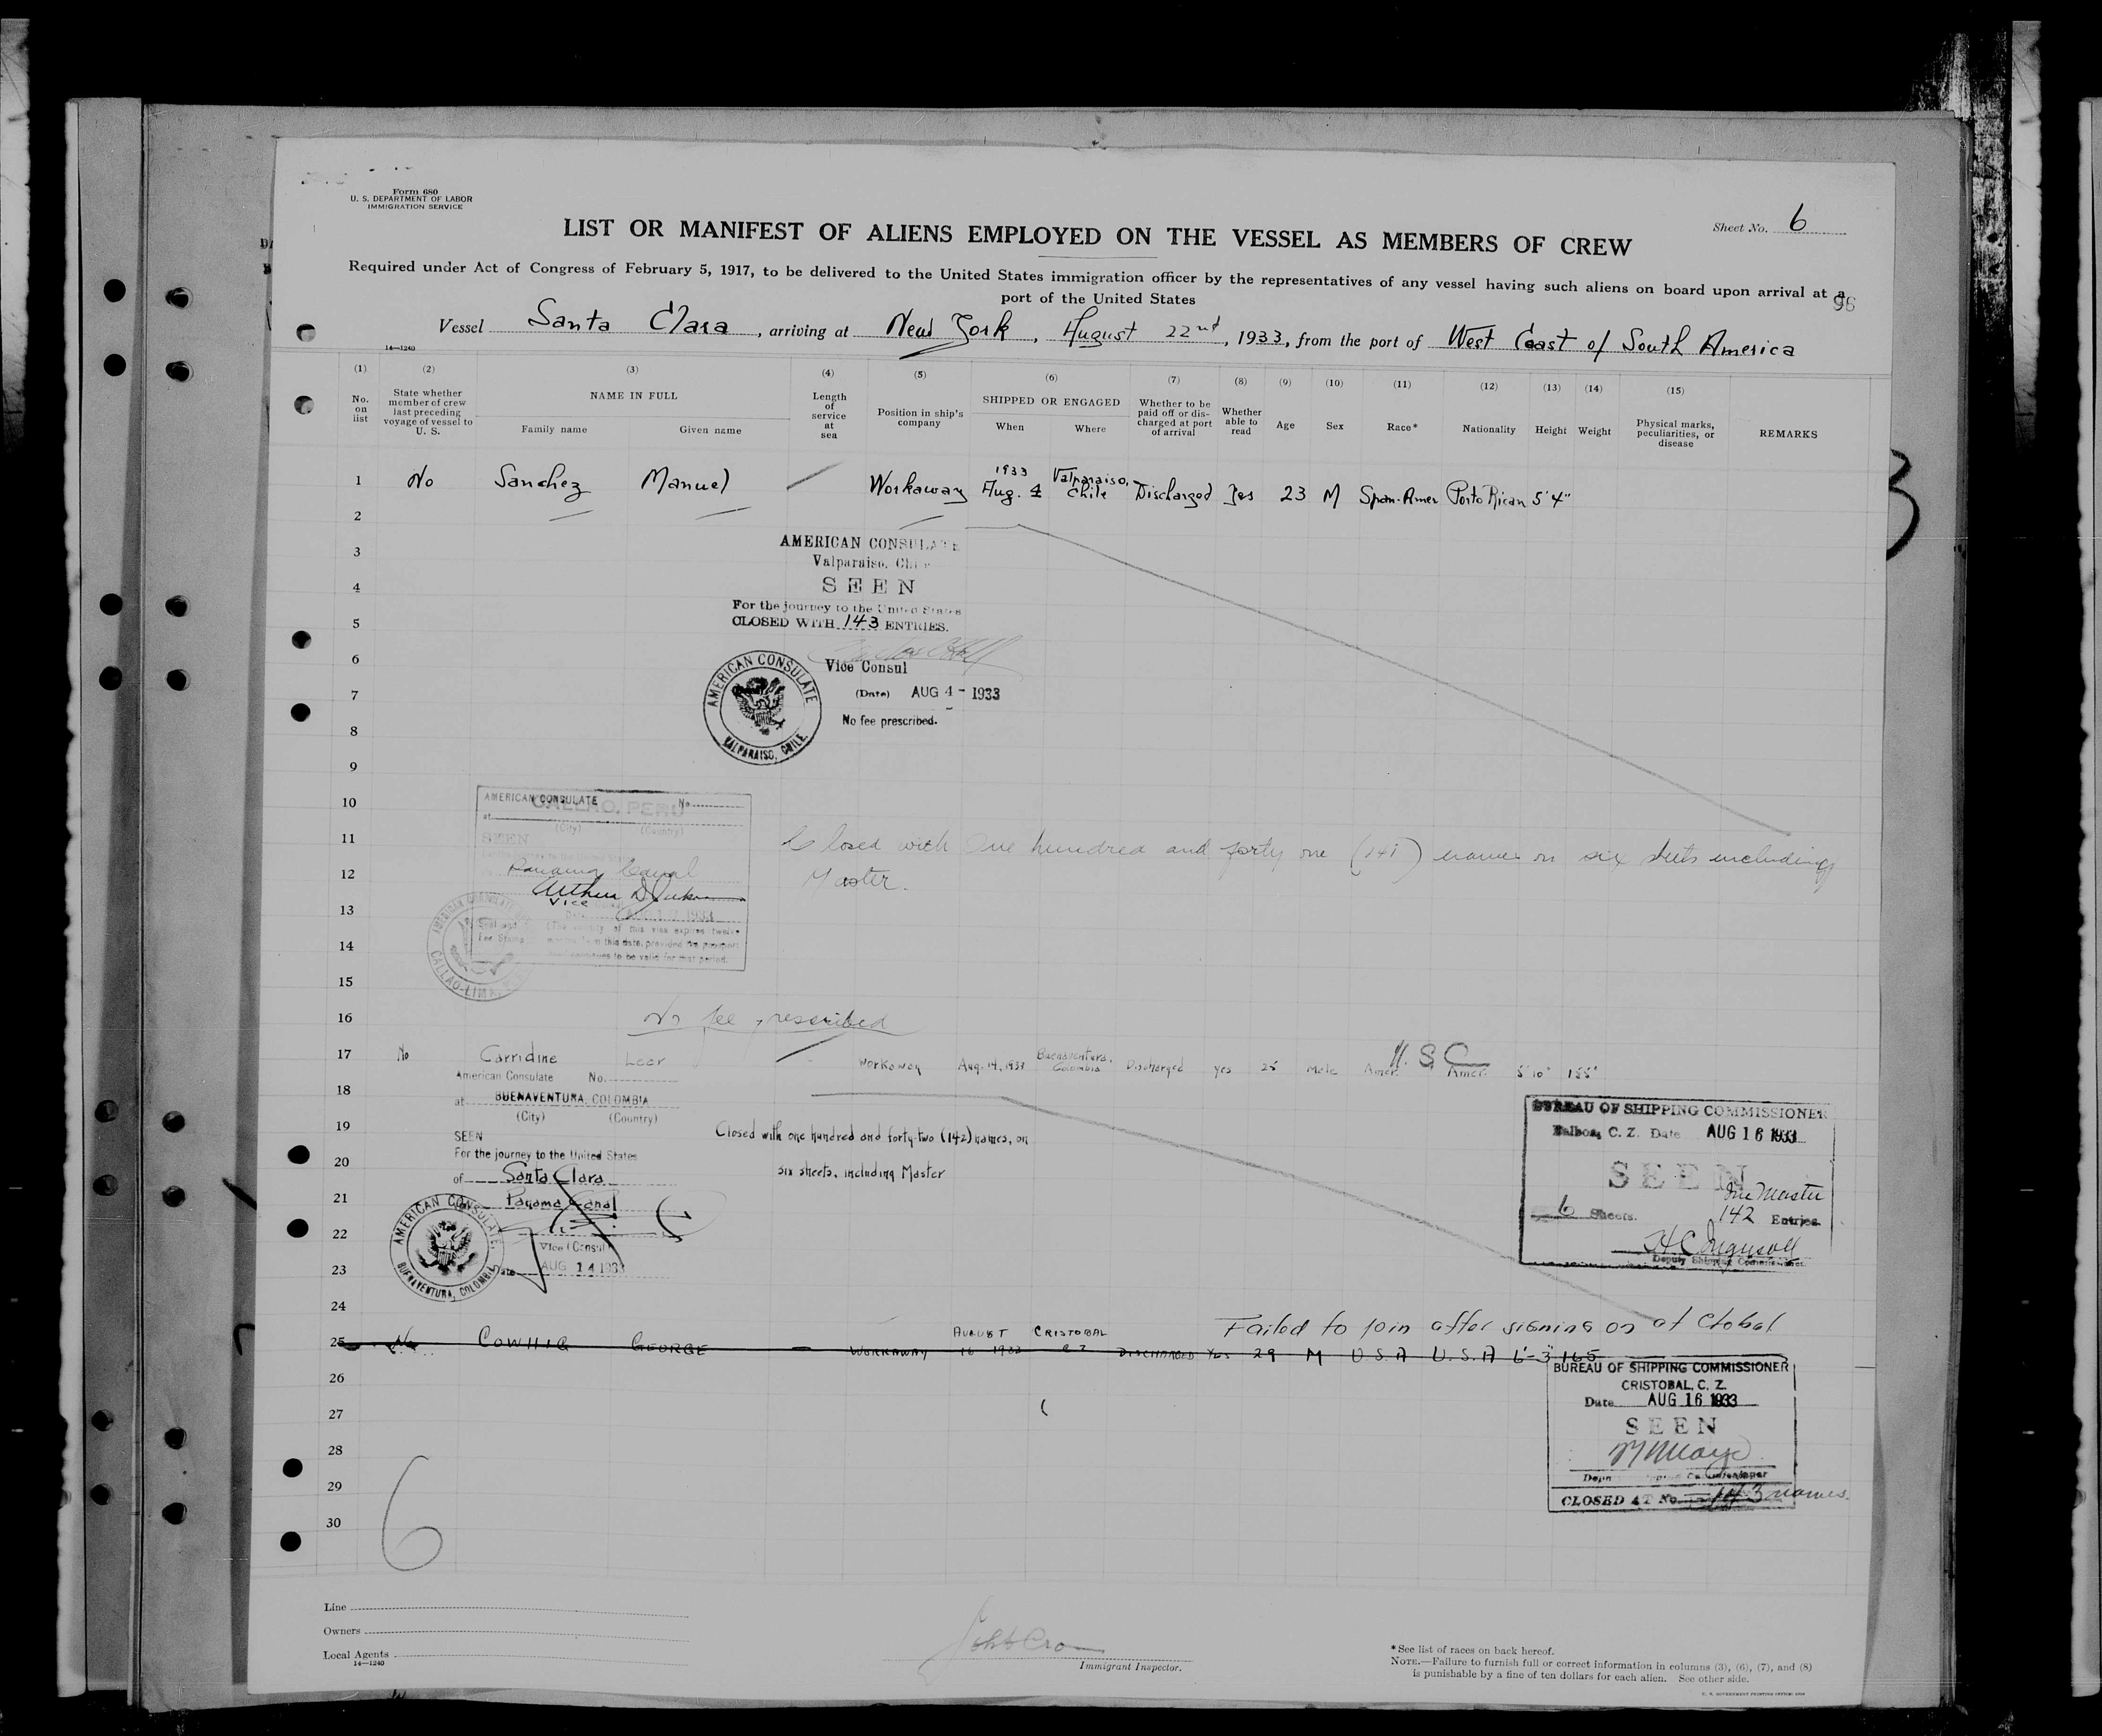 Form 680
U. S. DEPARTMENT OF LABOR
IMMIGRATION SERVICE
Sheet No. 6
LIST OR MANIFEST OF ALIENS EMPLOYED ON THE VESSEL AS MEMBERS OF CREW
Required under Act of Congress of February 5, 1917, to be delivered to the United States immigration officer by the representatives of any vessel having such aliens on board upon arrival at a
port of the United States
96
Vessel Santa Clara, arriving at New York, August 22nd, 1933, from the port of West Coast of South America
14—1240
(1) (2) (3) (4) (5) (6) (7) (8) (9) (10) (11) (12) (13) (14) (15)
No. on list
State whether member of crew last preceding voyage of vessel to U. S.
NAME IN FULL
Family name Given name
Length of service at sea
Position in ship's company
SHIPPED OR ENGAGED
When Where
Whether to be paid off or discharged at port of arrival
Whether able to read
Age Sex Race* Nationality Height Weight
Physical marks, peculiarities, or disease
REMARKS
1 No Sanchez Manuel Workaway 1933 Aug. 4 Valparaiso, Chile Discharged Yes 23 M Span-Amer Porto Rican 5'4"
2
3
4
5
6
7
8
9
AMERICAN CONSULATE
Valparaiso, Chile
SEEN
For the journey to the United States
CLOSED WITH 143 ENTRIES.
Vice Consul
(Date) AUG 4 - 1933
No fee prescribed.
AMERICAN CONSULATE
VALPARAISO, CHILE.
10
11
12
13
14
15
16
AMERICAN CONSULATE No.
at CALLAO, PERU
(City) (Country)
SEEN
Panama Canal
Vice
1933
(The validity of this visa expires twelve
months from this date, provided the passport
continues to be valid for that period.
AMERICAN CONSULATE
CALLAO-LIMA,
Closed with One hundred and forty one (141) names on six sheets including
Master.
No fee prescribed
17 No Carridine Leer Workaway Aug. 14, 1933 Buenaventura, Colombia Discharged yes 25 Male Amer. Amer. 5'10" 155#
U.S.C.
18
19
20
21
22
23
24
American Consulate No.
at BUENAVENTURA, COLOMBIA
(City) (Country)
SEEN
For the journey to the United States
of Santa Clara
Panama Canal
Vice Consul
Date AUG 14 1933
AMERICAN CONSULATE.
BUENAVENTURA, COLOMBIA
Closed with one hundred and forty-two (142) names, on
six sheets, including Master
BUREAU OF SHIPPING COMMISSIONER
Balboa, C. Z. Date AUG 16 1933
SEEN
One Master
6 Sheets. 142 Entries
Deputy Shipping Commissioner.
Failed to join after signing on at Ctobal
25 No COWHIG GEORGE WORKAWAY AUGUST 16 1933 CRISTOBAL CZ DISCHARGED YES 29 M U.S.A U.S.A 6'-3" 165
26
27
28
29
30
BUREAU OF SHIPPING COMMISSIONER
CRISTOBAL, C. Z.
Date AUG 16 1933
SEEN
Deputy Shipping Commissioner
CLOSED AT No. 143 names.
6
Line
Owners
Local Agents
14—1240
Immigrant Inspector.
*See list of races on back hereof.
NOTE.—Failure to furnish full or correct information in columns (3), (6), (7), and (8)
is punishable by a fine of ten dollars for each alien. See other side.